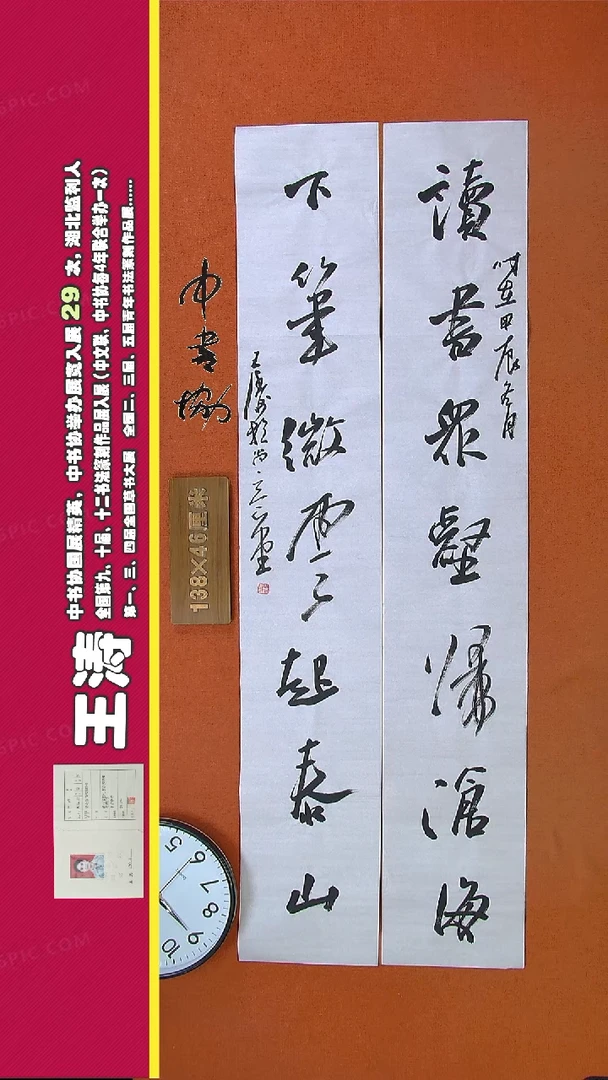 讀書衆壑歸滄海
时在甲辰冬月
下筆微雲起泰山
王濤书於尚
中書協
138×46厘米
中书协国展精英，中书协举办展览入展 29 次，湖北监利人
全国第九、十届、十二书法篆刻作品展入展（中文联、中书协每4年联合举办一次）
第一、三、四届全国草书大展 全国二、三届、五届青年书法篆刻作品展......
王涛
5
6
7
8
9
10